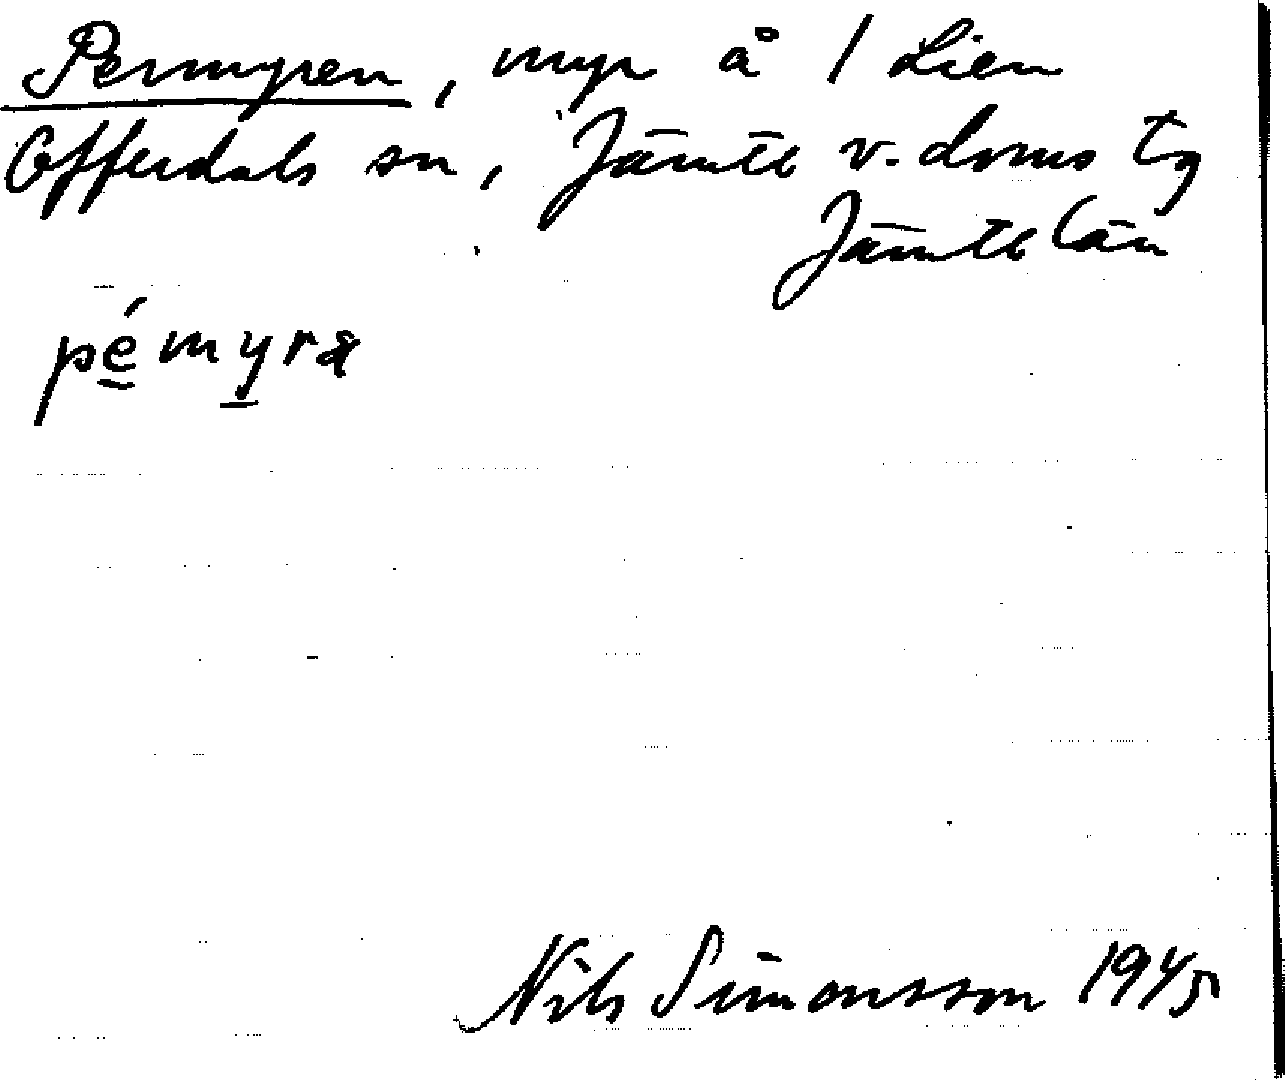 Permyren, myr å 1 Lien
Offerdals sn, Jämtl v. doms tg
Jämtl län
pémyra
Nils Simonsson 1945